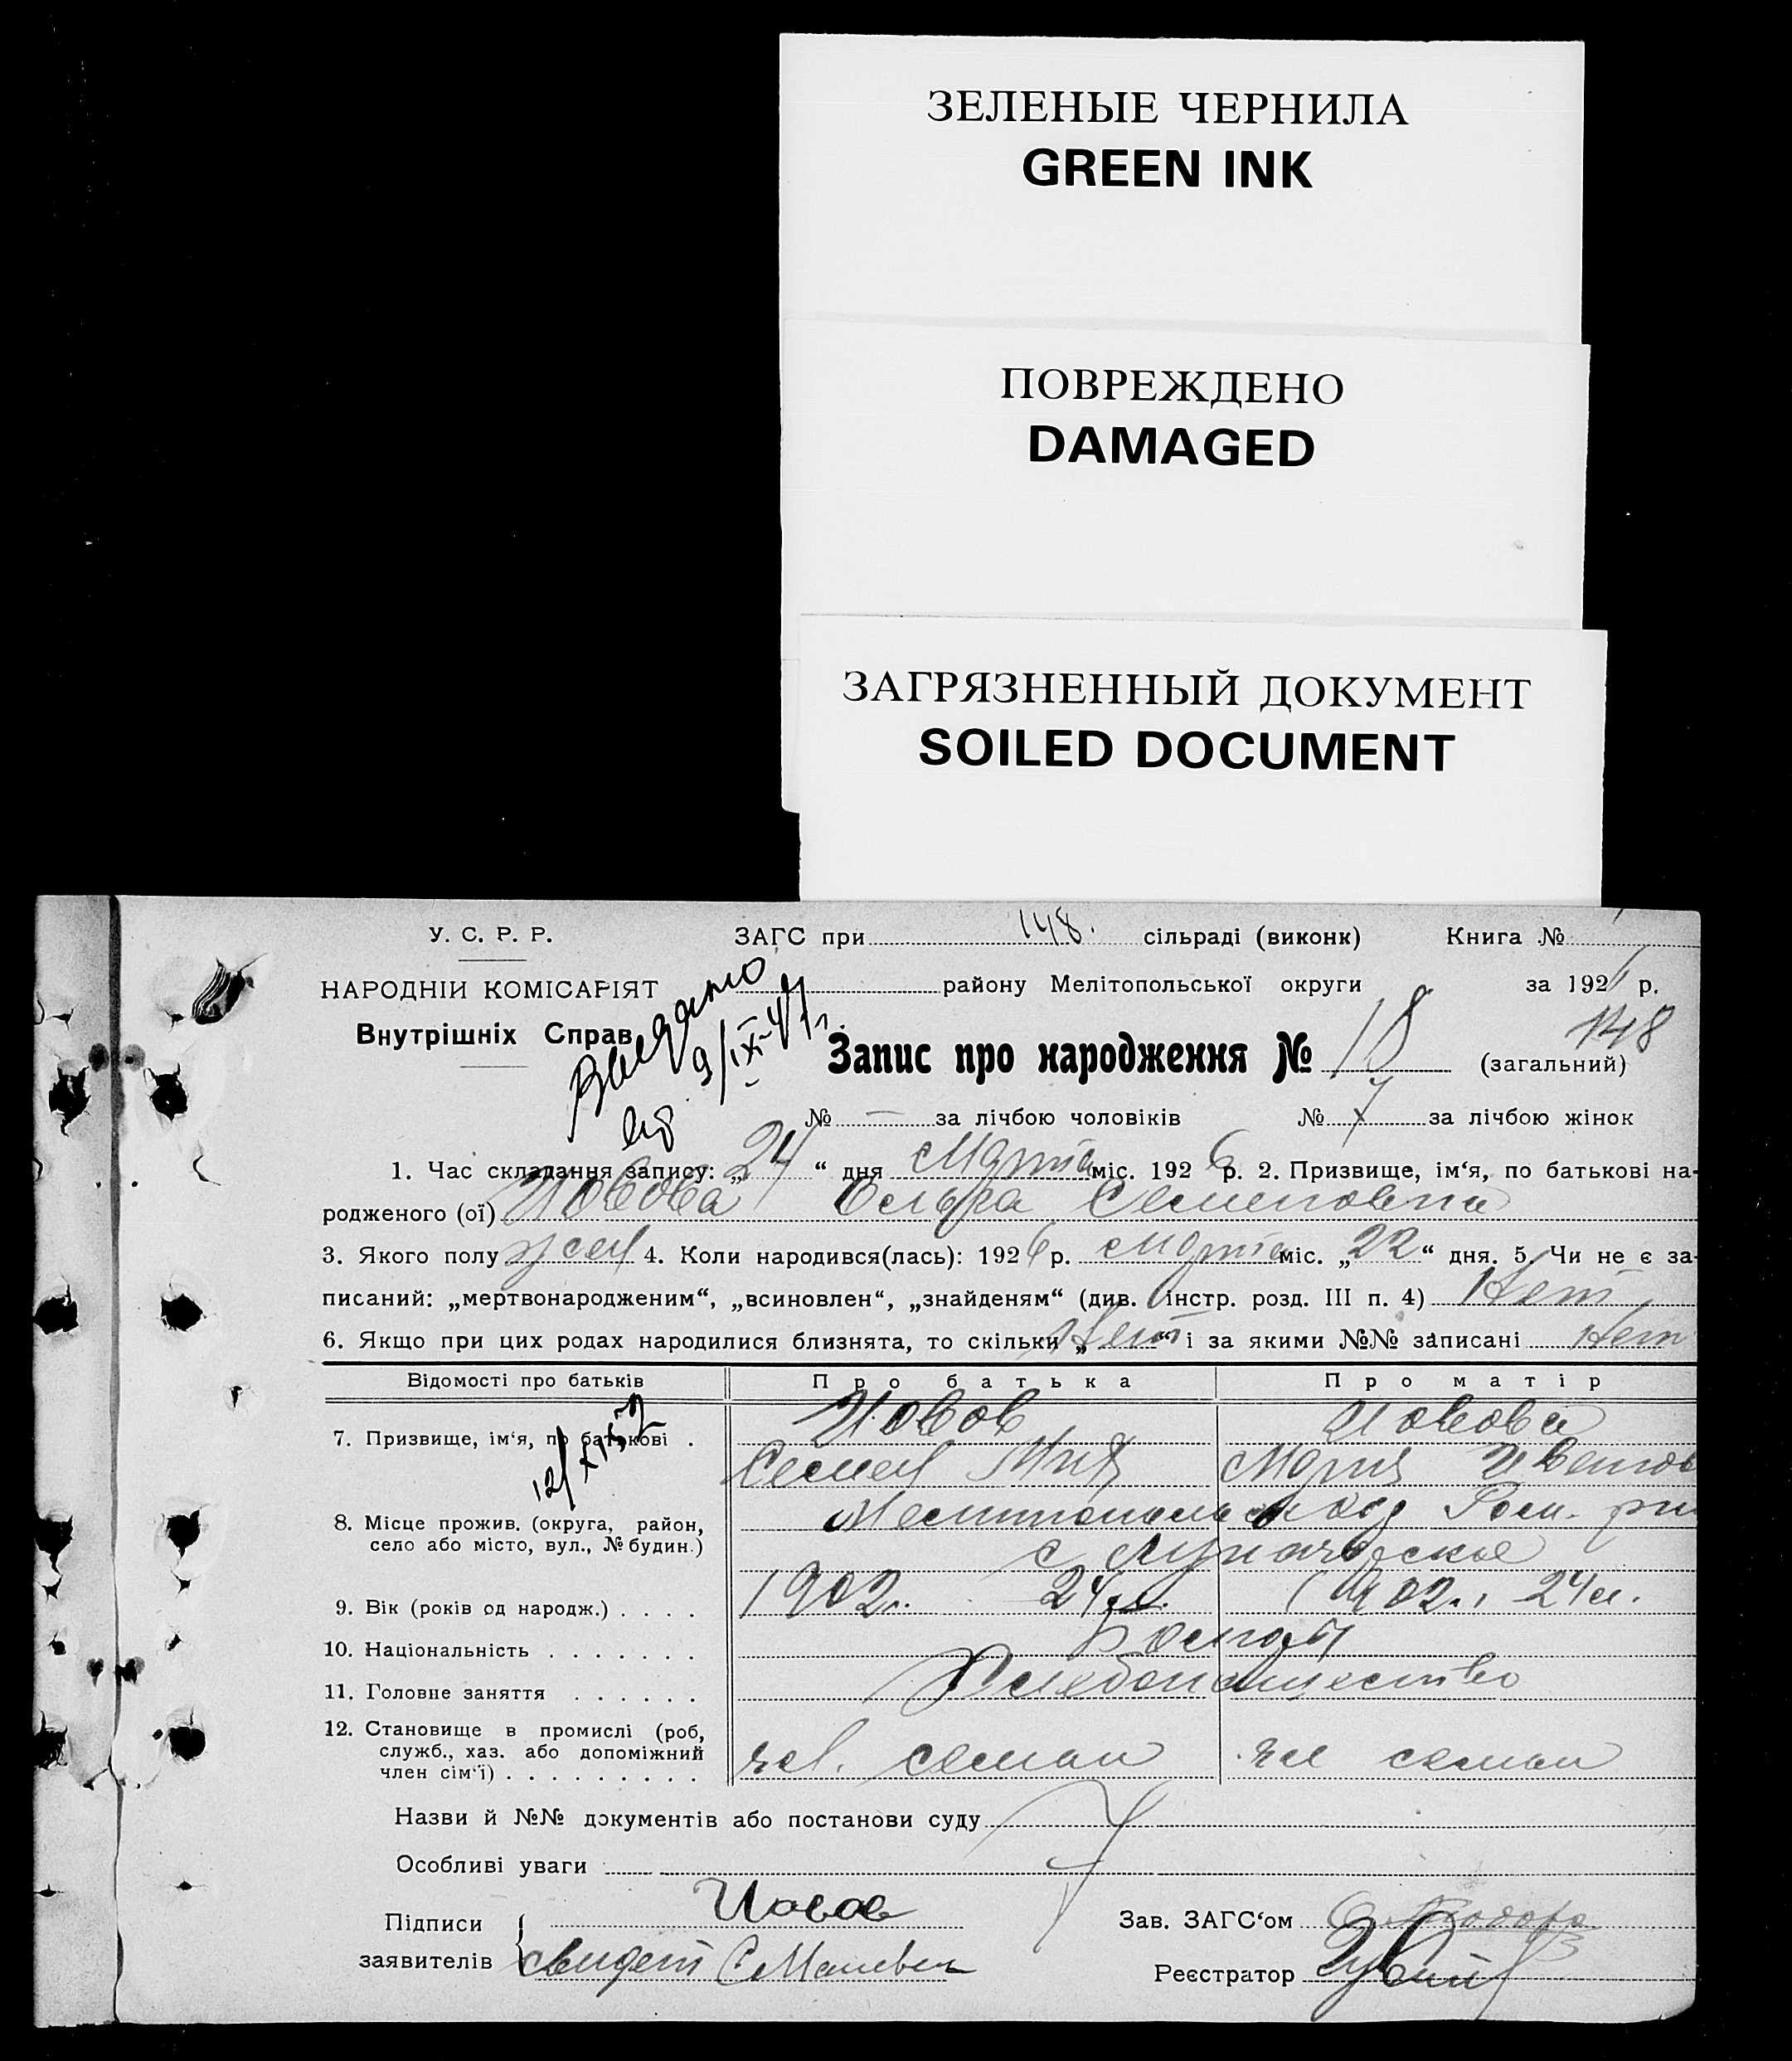 ЗЕЛЕНЫЕ ЧЕРНИЛА
GREEN INK
ПОВРЕЖДЕНО
DAMAGED
ЗАГРЯЗНЕННЫЙ ДОКУМЕНТ
SOILED DOCUMENT
У. С. Р. Р. ЗАГС при 148. сільраді (виконк) Книга №
НАРОДНІЙ КОМІСАРІЯТ району Мелітопольської округи за 1926 р.
Внутрішніх Справ
Выдано
9/IX-47г.
148
Запис про народження № 18 (загальний)
№ — за лічбою чоловіків № 7 за лічбою жінок
1. Час складання запису: „24“ дня Марта міс. 1926 р. 2. Призвище, ім‘я, по батькові на-
родженого (ої) Иовова Ольга Семеновна
3. Якого полу жен 4. Коли народився(лась): 1926 р. Марта міс. „22“ дня. 5. Чи не є за-
писаний: „мертвонародженим“, „всиновлен“, „знайденям“ (див. інстр. розд. III п. 4) Нет
6. Якщо при цих родах народилися близнята, то скільки „Нет“ і за якими №№ записані Нет
Відомості про батьків Про батька Про матір
7. Призвище, ім‘я, по батькові . Иовов Иовова
Семен Мария
12/XI 52
8. Місце прожив. (округа, район,
село або місто, вул., № будин.)
с
9. Вік (років од народж.) . . . . 1902г. 24 л. 1902г. 24 л.
10. Національність . . . . . . .
11. Головне заняття . . . . . . Хлебопашество
12. Становище в промислі (роб,
служб., хаз. або допоміжний
член сім‘ї) . . . . . . . . . чл. семьи чл семьи
Назви й №№ документів або постанови суду
Особливі уваги
Підписи Иовов Зав. ЗАГС‘ом
заявителів Реєстратор